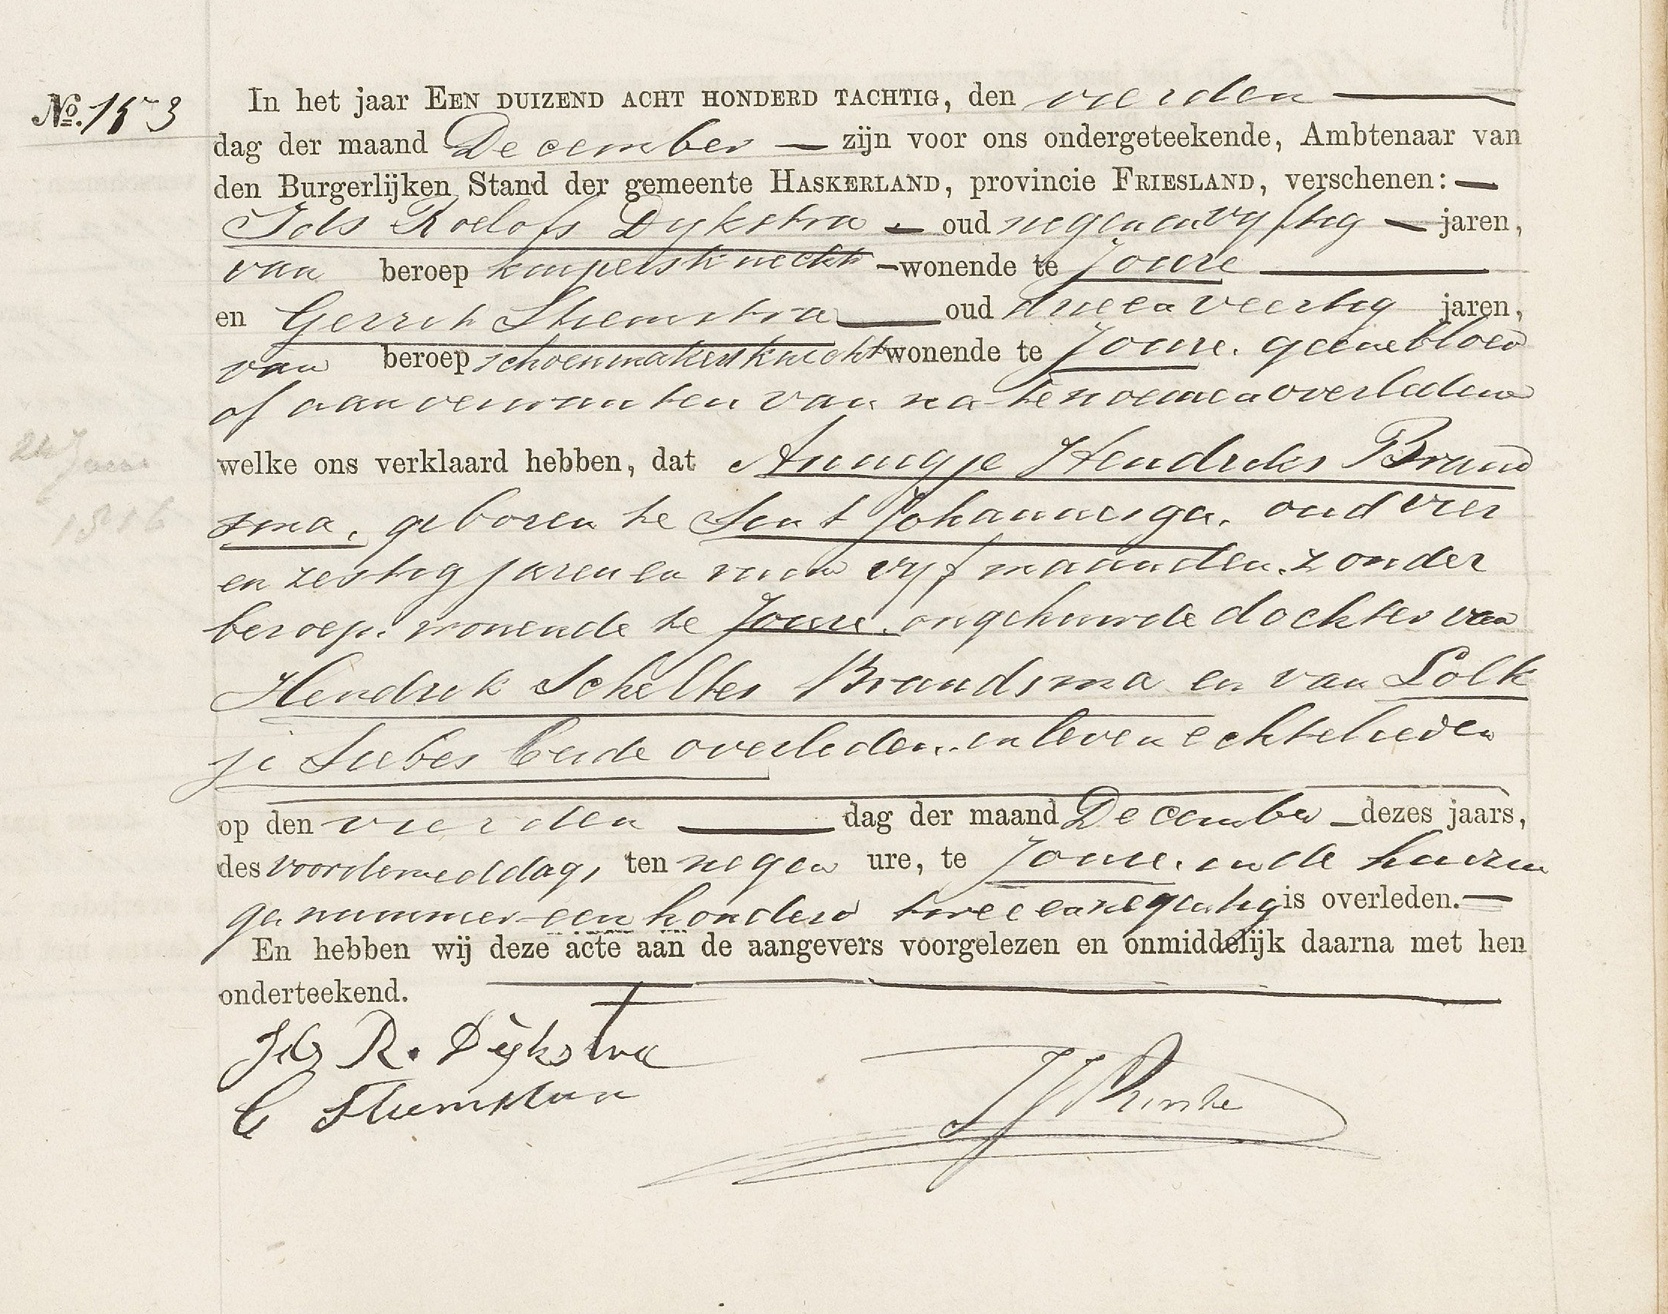 No. 153
In het jaar EEN DUIZEND ACHT HONDERD TACHTIG, den vierden
dag der maand December zijn voor ons ondergeteekende, Ambtenaar van
den Burgerlijken Stand der gemeente HASKERLAND, provincie FRIESLAND, verschenen:
Ids Roelofs Dykstra oud negenenvyftig jaren,
van beroep kuipersknecht wonende te Joure
en Gerrit Stiemstra oud drieenveertig jaren,
van beroep schoenmakersknecht wonende te Joure. geene bloed
of aanverwanten van na te noemen overledene
welke ons verklaard hebben, dat Annigje Hendriks Brand
sma, geboren te Sint Johannesga. oud vier
en zestig jaren en ruim vyf maanden. zonder
beroep. wonende te Joure. ongehuwde dochter van
Hendrik Scheltes Brandsma en van Lolk
je Siebes beide overleden. in leven echtelieden
op den vierden dag der maand December dezes jaars,
des voordemiddags ten negen ure, te Joure. in de huizin
ge nummer een honderd twee en negentig is overleden.
En hebben wij deze acte aan de aangevers voorgelezen en onmiddelijk daarna met hen
onderteekend.
Ids R. Dijkstra
G Stiemstra
24 Juni
1816